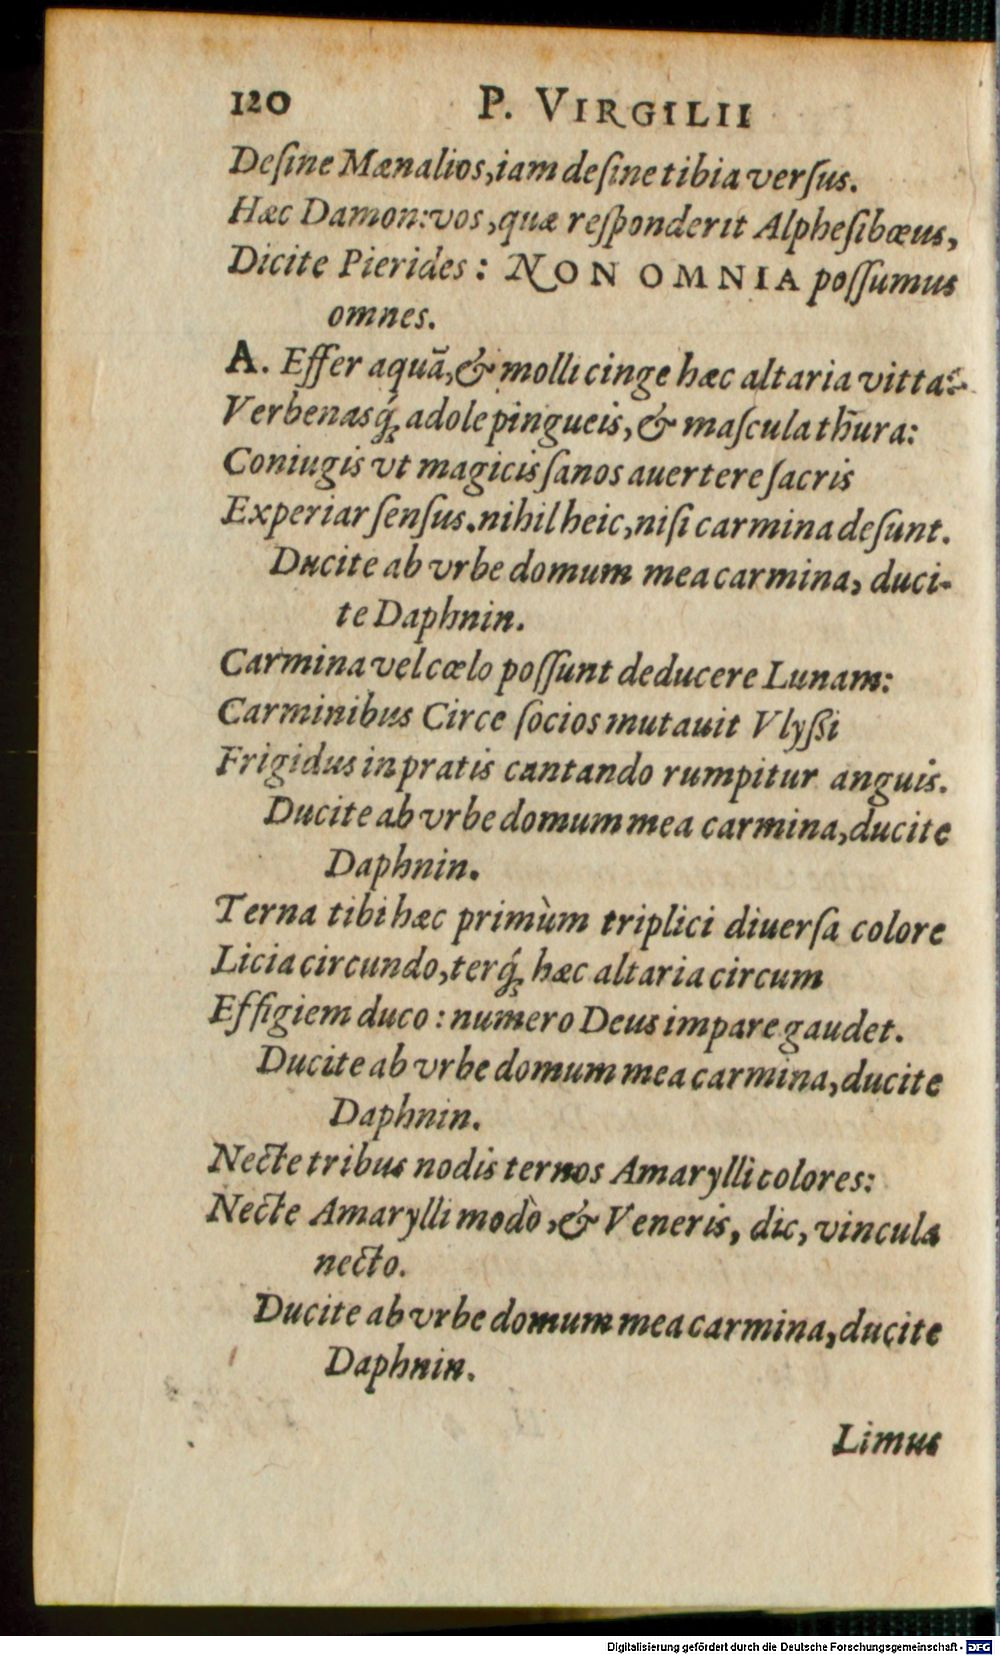 120 P. VIRGILII
Deſine Mænalios, iam deſine tibia verſus.
Hæc Damon: vos, quæ reſponderit Alpheſibœus,
Dicite Pierides: NON OMNIA poſſumus
omnes.
A. Effer aquā, & molli cinge hæc altaria vitta:
Verbenasq́; adole pingueis, & maſcula thura:
Coniugis vt magicis ſanos auertere ſacris
Experiar ſenſus. nihil heic, niſi carmina deſunt.
Ducite ab vrbe domum mea carmina, duci-
te Daphnin.
Carmina vel cœlo poſſunt deducere Lunam:
Carminibus Circe ſocios mutauit Vlyßi
Frigidus in pratis cantando rumpitur anguis.
Ducite ab vrbe domum mea carmina, ducite
Daphnin.
Terna tibi hæc primùm triplici diuerſa colore
Licia circundo, terq́; hæc altaria circum
Effigiem duco: numero Deus impare gaudet.
Ducite ab vrbe domum mea carmina, ducite
Daphnin.
Necte tribus nodis ternos Amarylli colores:
Necte Amarylli modò, & Veneris, dic, vincula
necto.
Ducite ab vrbe domum mea carmina, ducite
Daphnin.
Limus
Digitalisierung gefördert durch die Deutsche Forschungsgemeinschaft - DFG